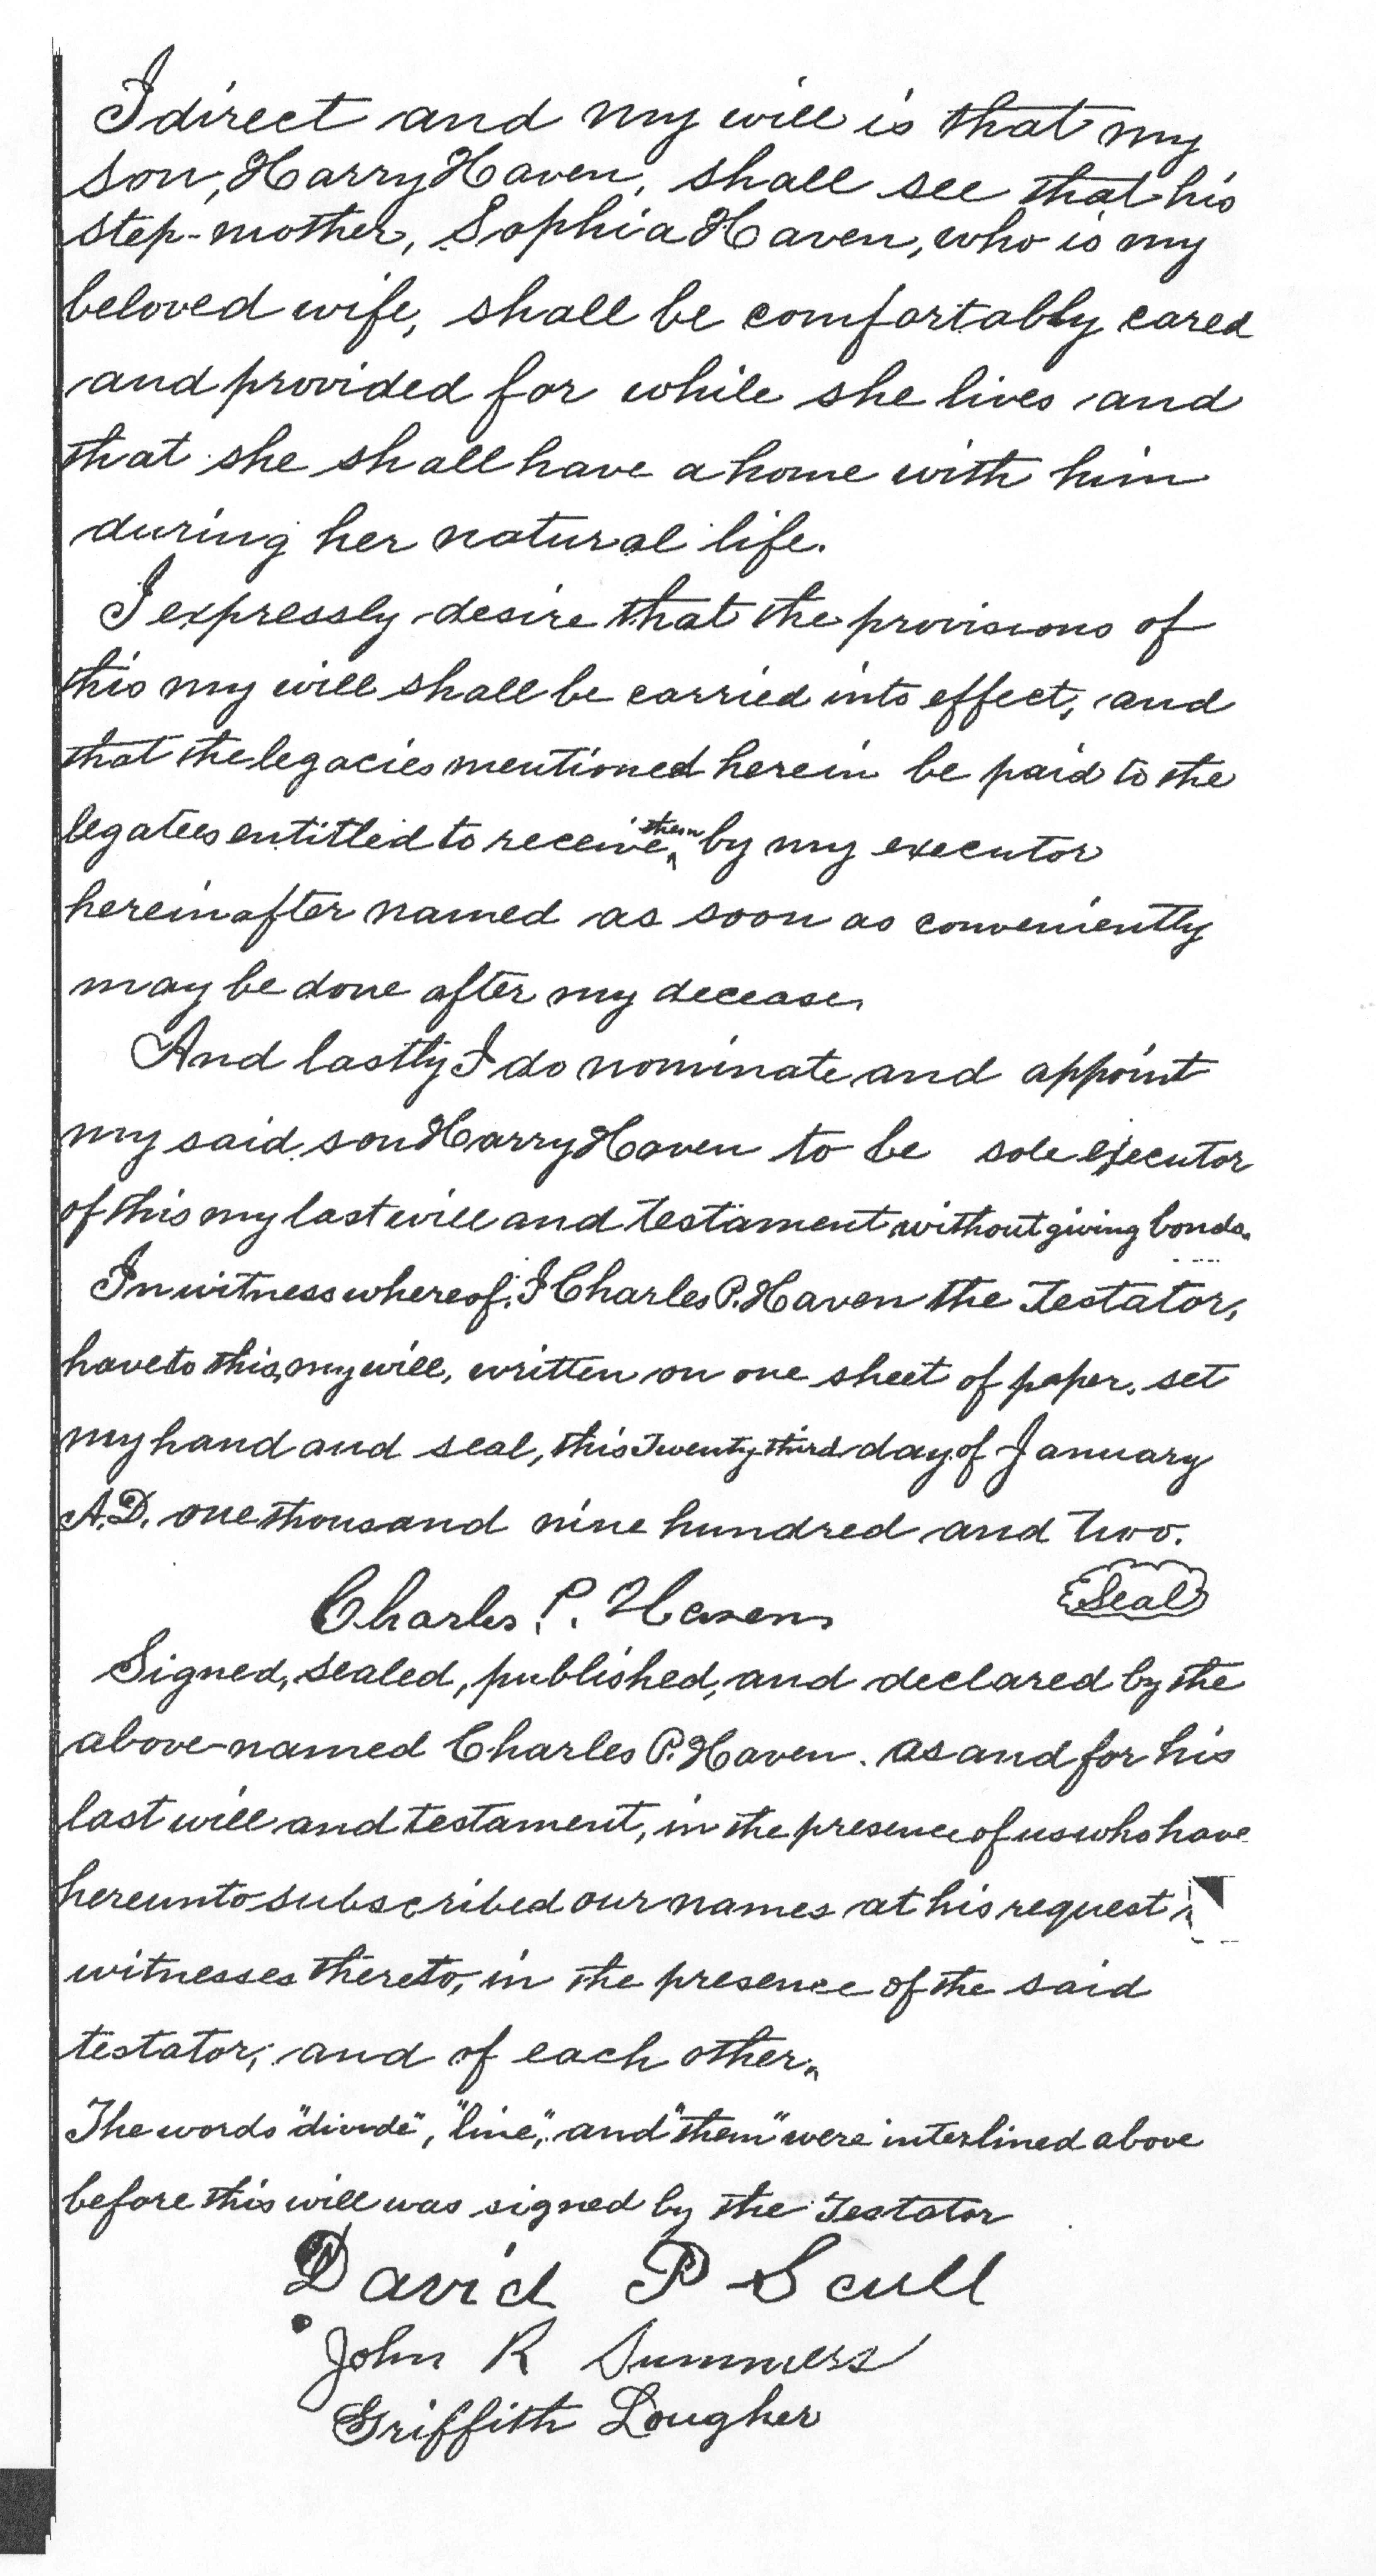 I direct and my will is that my
son, Harry Haven, shall see that his
step-mother, Sophia Haven, who is my
beloved wife, shall be comfortably cared
and provided for while she lives and
that she shall have a home with him
during her natural life.
I expressly desire that the provisions of
this my will shall be carried into effect, and
that the legacies mentioned herein be paid to the
legatees entitled to receive them by my executor
hereinafter named as soon as conveniently
may be done after my decease.
And lastly I do nominate and appoint
my said son Harry Haven to be sole executor
of this my last will and testament without giving bonds.
In witness whereof, I Charles P. Haven the Testator,
have to this, my will, written on one sheet of paper, set
my hand and seal, this Twenty third day of January
A.D. one thousand nine hundred and two.
Charles P. Haven Seal
Signed, sealed, published, and declared by the
above-named Charles P. Haven. as and for his
last will and testament, in the presence of us who have
hereunto subscribed our names at his request,
witnesses thereto, in the presence of the said
testator, and of each other.
The words "divide", "line", and "them" were interlined above
before this will was signed by the Testator
David P Scull
John R Summers
Griffith Lougher